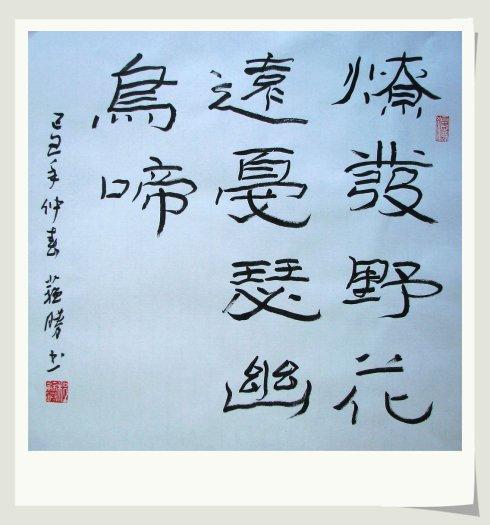 燎發野花
遠憂瑟幽
鳥啼
己丑年仲春 蘓勝书